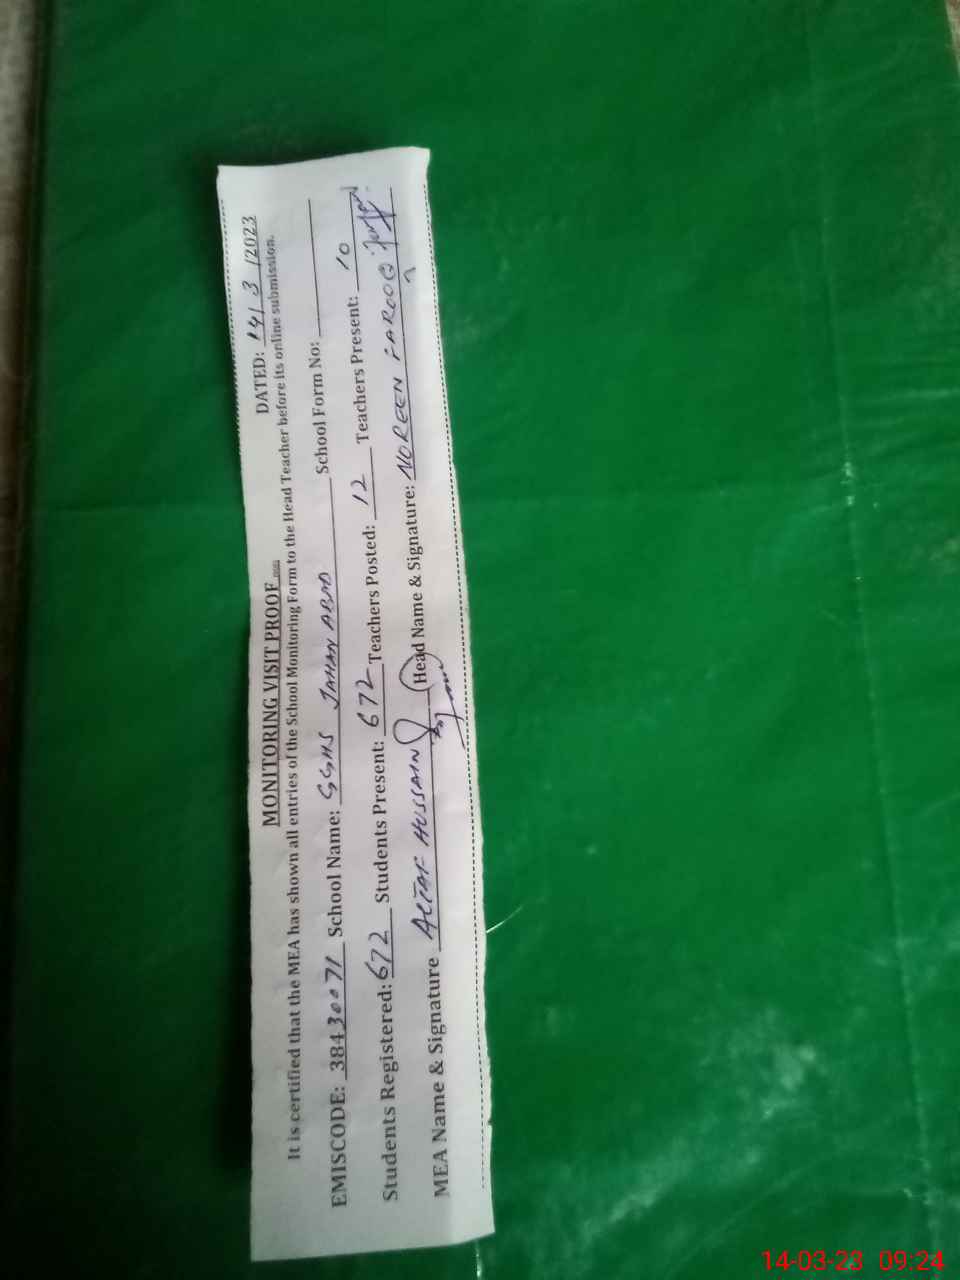 DATED: 14/3/2023
MONITORING VISIT PROOF
It is certified that the MEA has shown all entries of the School Monitoring Form to the Head Teacher before its online submission.
EMISCODE: 38430071 School Name: GGHS JAHAN ABAD School Form No:
Students Registered: 672 Students Present: 672 Teachers Posted: 12 Teachers Present: 10
MEA Name & Signature ALTAF HUSSAIN Head Name & Signature: NOREEN FAROOQ
14-03-23 09:24